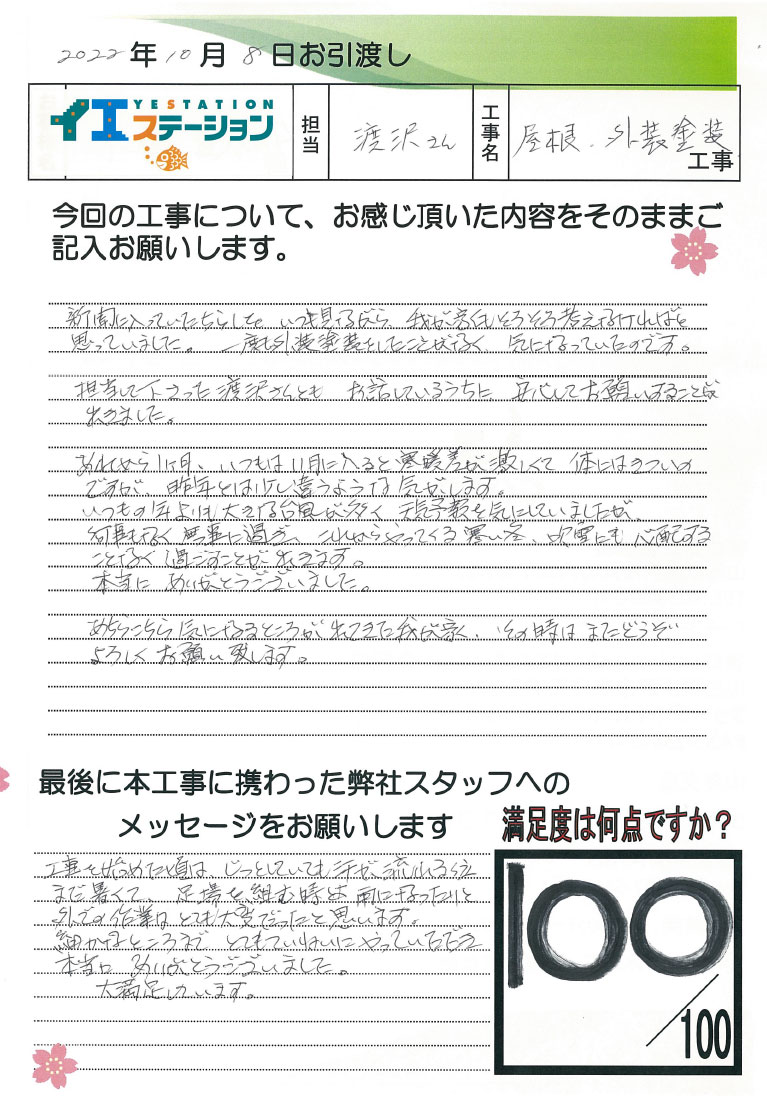 2022年10月8日お引渡し
YESTATION
イエステーション
担当
渡沢さん
工事名
屋根、外装塗装
工事
今回の工事について、お感じ頂いた内容をそのままご
記入お願いします。
新聞に入っていたちらしを いつも見ながら 我が家もそろそろ考えなければと
思っていました。一度も外装塗装をしたことがなく 気になっていたのです。
担当して下さった渡沢さんとも お話しているうちに 安心してお願いすることが
出きました。
あれから1ヶ月、いつもは11月に入ると寒暖差が激しくて 体にはきついの
ですが、昨年とは少し違うような気がします。
いつもの年よりも大きな台風が多く 天気予報を気にしていましたが、
何事もなく無事に過ぎ、これからやってくる寒い冬、吹雪にも心配する
ことなく過ごすことが出きます。
本当に ありがとうございました。
あちらこちら気になるところが出てきた我が家、その時は またどうぞ
よろしくお願い致します。
最後に本工事に携わった弊社スタッフへの
メッセージをお願いします
満足度は何点ですか?
工事を始めた頃は、じっとしていても汗が流れるくらい
まだ暑くて、足場を組む時は雨になったりと
外での作業は とても大変だったと思います。
細かなところまで とてもていねいにやっていただき
本当に ありがとうございました。
大満足しています。
100
/100